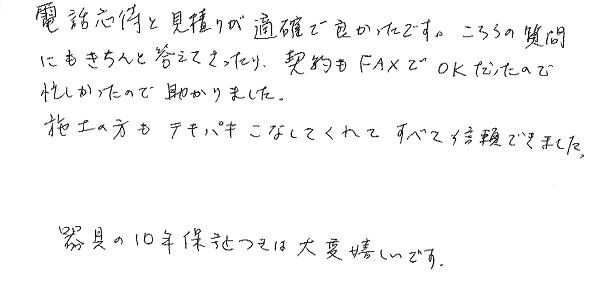 電話応待と見積りが適確で良かったです。こちらの質問
にもきちんと答えてさったり、契約もFAXでOKだったので
忙しかったので助かりました。
施工の方もテキパキこなしてくれてすべて信頼できました。
器具の10年保証つきは大変嬉しいです。